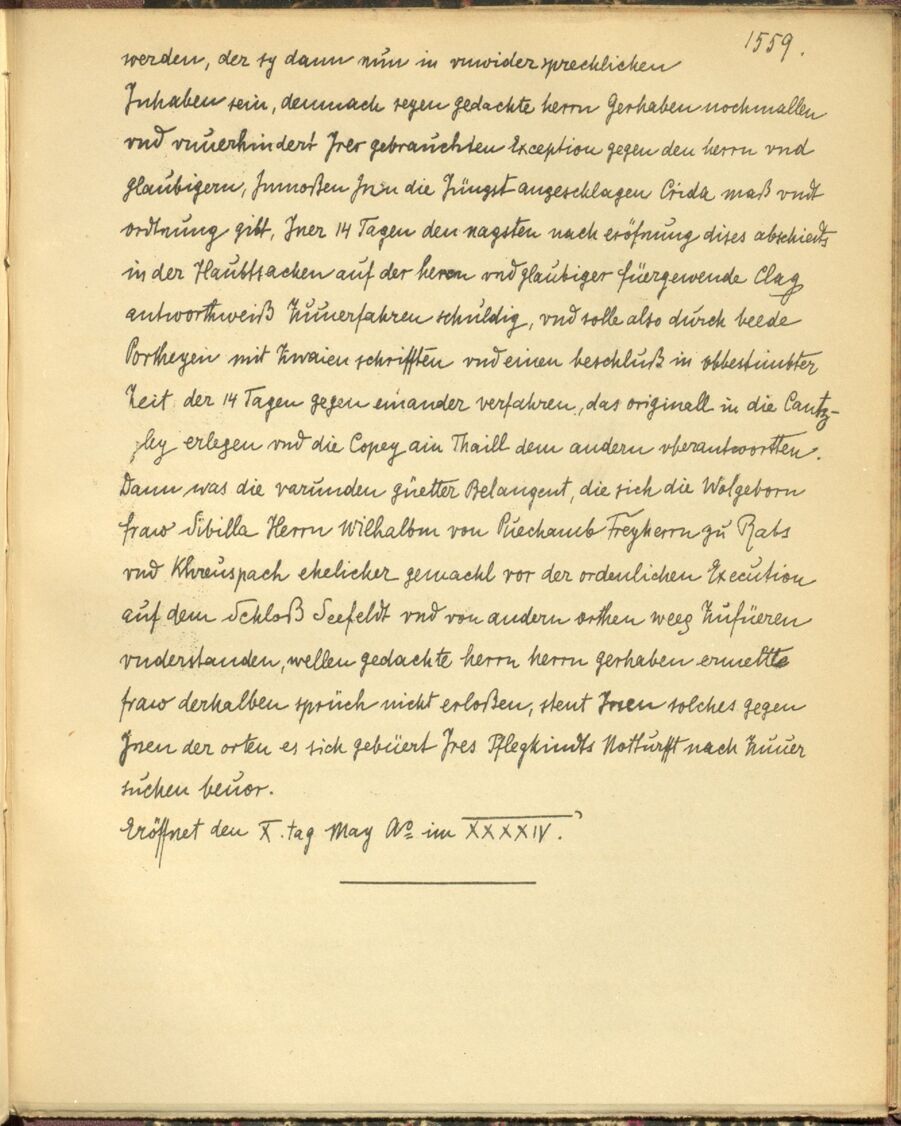 1559.
werden, der sy dann nun in vnwidersprechlichen
Inhaben sein, demnach seyen gedachte herrn Gerhaben nochmallen
vnd vnuerhindert Irer gebrauchten Exception gegen den herrn vnd
glaubigern, Inmoßen Inen die Jüngst angeschlagen Crida maß vndt
ordtnung gibt, Iner 14 Tagen den nagsten nach eröfnung dises abschiedts
in der Haubtsachen auf der heren vnd glaubiger füergewende Clag
antworthweiß Zuuerfahren schuldig, vnd solle also durch beede
Portheyen mit Zwaien schrifften vnd einen beschluß in obbestimbter
Zeit der 14 Tagen gegen einander verfahren, das originall in die Cantz-
ley erlegen vnd die Copey ain Thaill dem andern vberantwortten.
Dann was die varunden güetter Belangent, die sich die Wolgeborn
fraw Sibilla Herrn Wilhalbm von Puechamb Freyherrn zu Rabs
vnd Khreuspach ehelicher gemachl vor der ordenlichen Execution
auf dem Schloß Seefeldt vnd von andern orthen weeg Zufüeren
vnderstanden, wellen gedachte herrn herrn gerhaben ermeltte
fraw derhalben sprüch nicht erloßen, stent Inen solches gegen
Inen der orten es sich gebüert Ires Pflegkindts Notturfft nach Zuuer
suchen beuor.
Eröffnet den X. tag May Ao im XXXXIV.